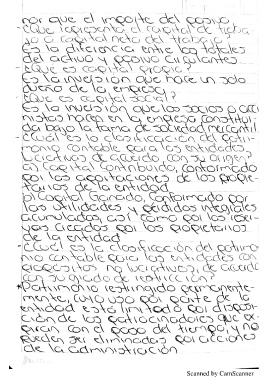 por que el importe del pasivo
¿Que representa el capital de traba-
jo o capital neto de trabajo?
Es la diferencia entre los totales
del activo y pasivo circulantes
¿Que es capital propio?
Es la inversión que hace un solo
dueño de la empresa
¿Que es capital social?
Es la inversión que los socios o accio
nistas hacen en la empresa constitui-
da bajo la forma de sociedad mercantil
¿Cual es la clasificación del patri-
monio contable para las entidades
lucrativas de acuerdo con su origen?
a) Capital Contribuido, conformado
por las aportaciones de los propie-
tarios de la entidad
b) Capital ganado, conformado por
las utilidades y perdidas integrales
acumuladas, así como por las reser-
vas creadas por los propietarios
de la entidad
¿Cual es la clasificación del patrimo-
nio contable para las entidades con
propositos no lucrativos, de acuerdo
con su grado de restricción?
* Patrimonio restringido permanente-
mente, cuyo uso por parte de la
entidad esta limitado por disposi-
ción de los patrocinadores que no ex-
piran con el paso del tiempo, y no
pueden ser eliminadas por acciones
de la administración
Scanned by CamScanner